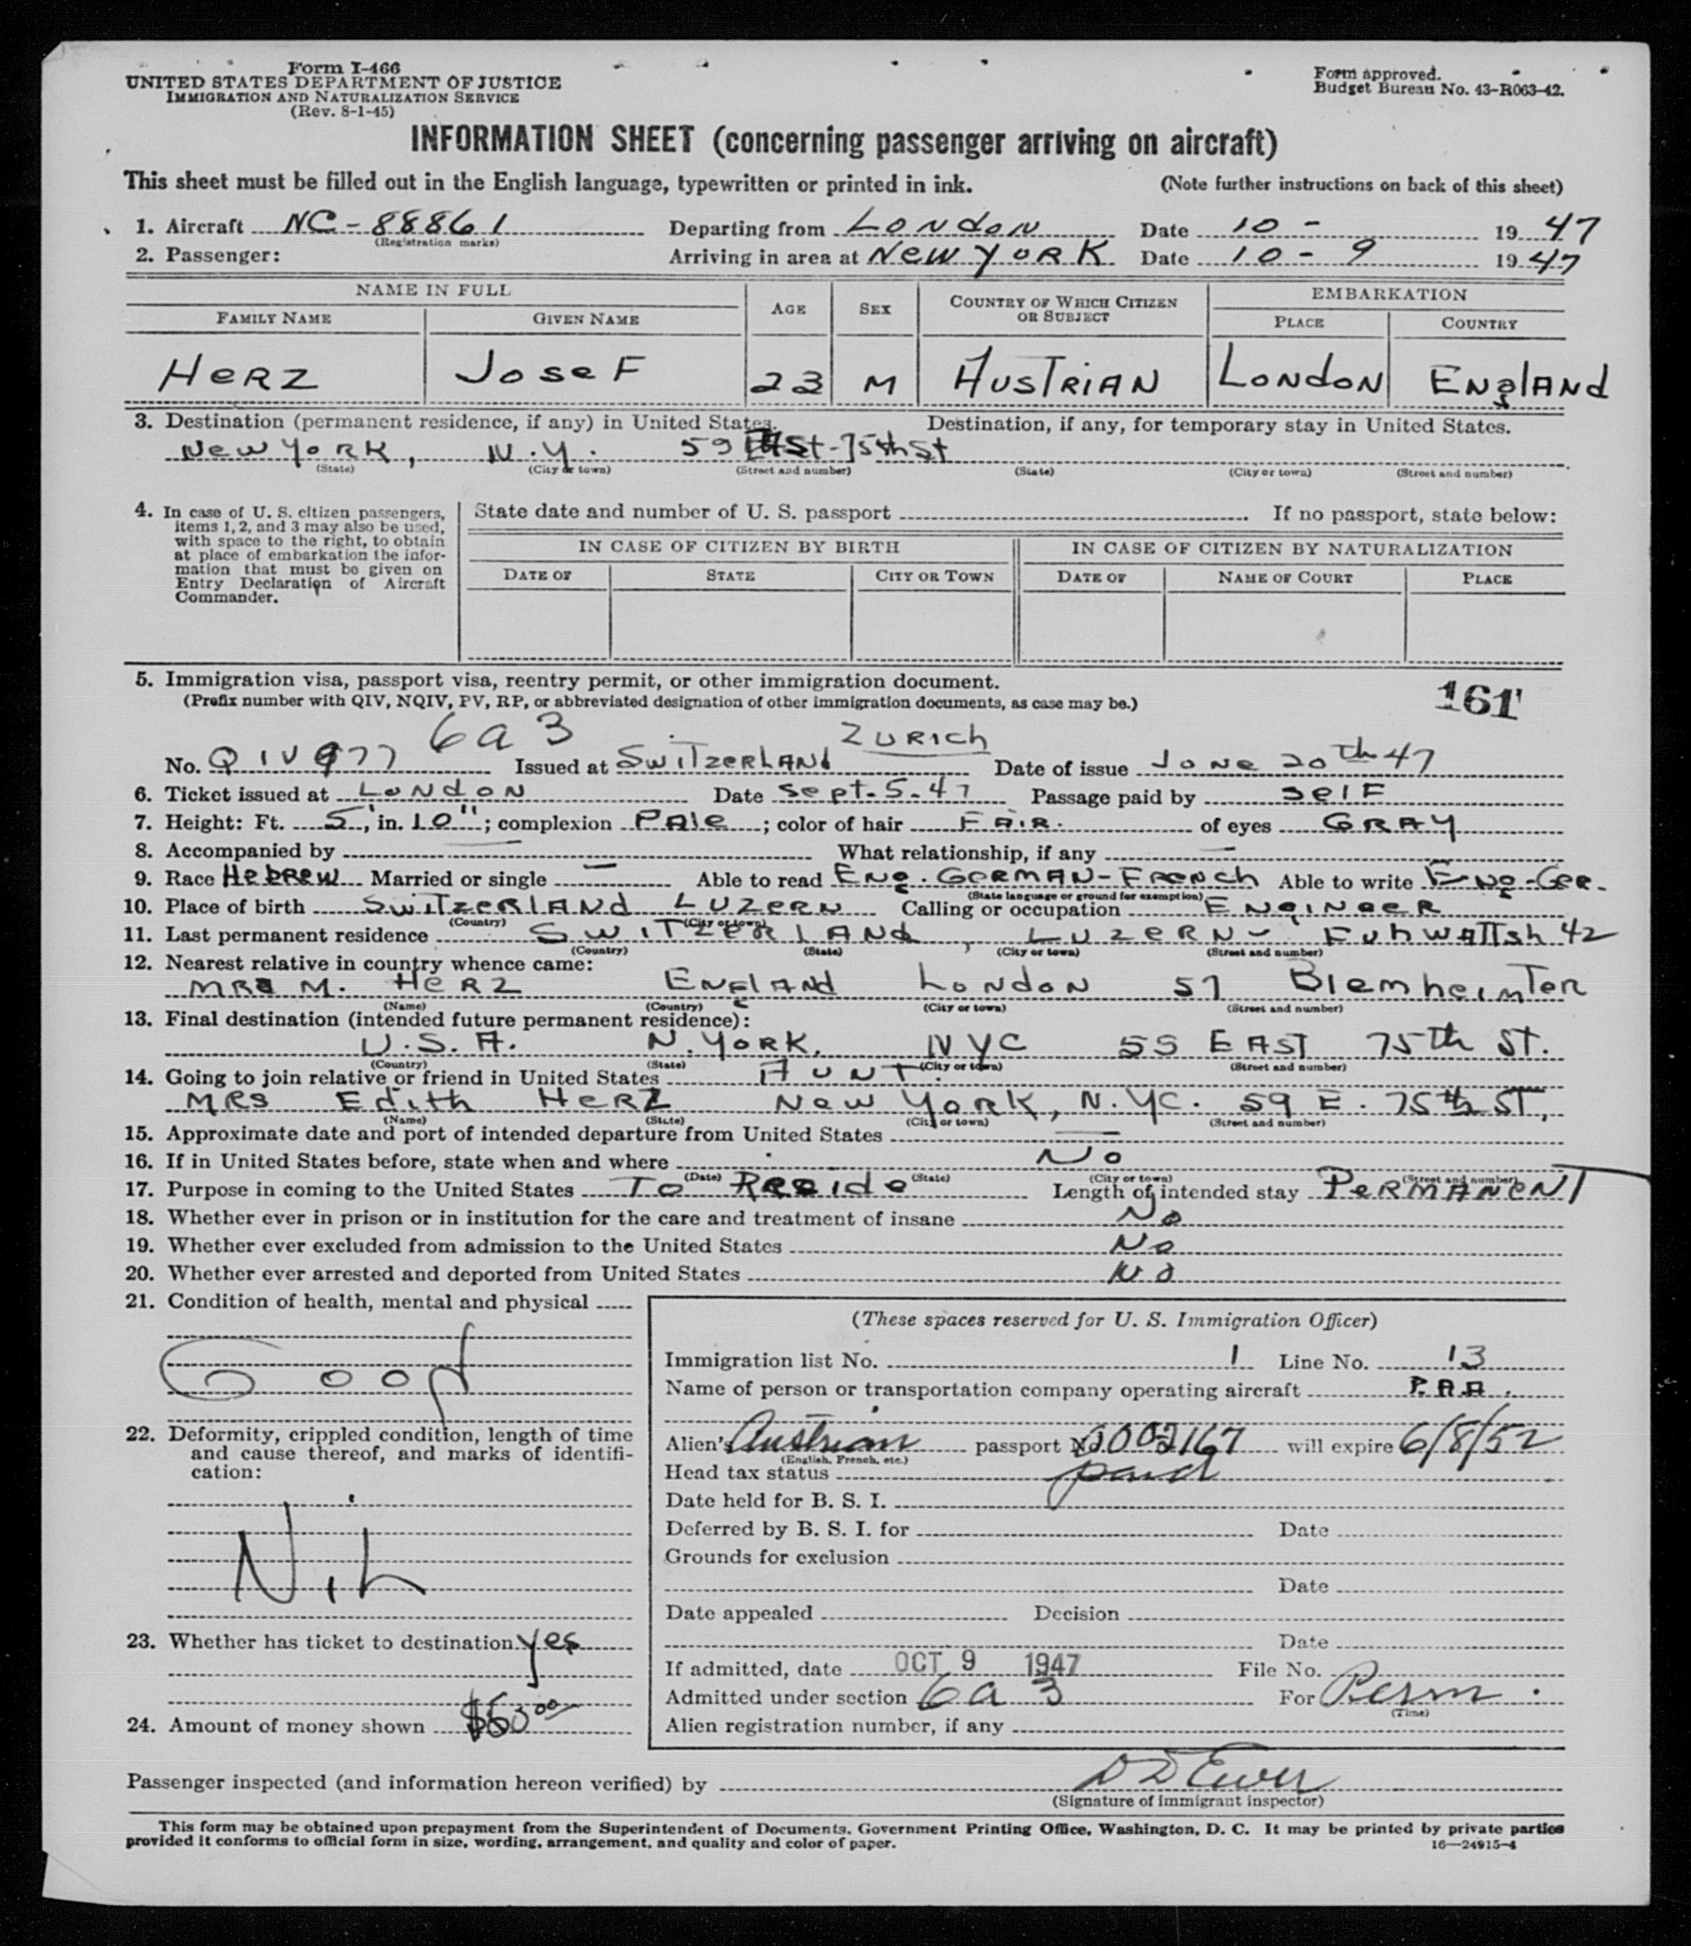 Form I-466
UNITED STATES DEPARTMENT OF JUSTICE
IMMIGRATION AND NATURALIZATION SERVICE
(Rev. 8-1-45)
Form approved.
Budget Bureau No. 43-R063-42.
INFORMATION SHEET (concerning passenger arriving on aircraft)
This sheet must be filled out in the English language, typewritten or printed in ink. (Note further instructions on back of this sheet)
1. Aircraft NC-88861 Departing from London Date 10 - 1947
(Registration marks)
2. Passenger: Arriving in area at New York Date 10 - 9 1947
NAME IN FULL AGE SEX COUNTRY OF WHICH CITIZEN OR SUBJECT EMBARKATION
FAMILY NAME GIVEN NAME PLACE COUNTRY
HERZ JoseF 23 M AUSTRIAN LONDON ENglAND
3. Destination (permanent residence, if any) in United States. Destination, if any, for temporary stay in United States.
New York, N.Y. 59 EASt-75th St
(State) (City or town) (Street and number) (State) (City or town) (Street and number)
4. In case of U. S. citizen passengers, items 1, 2, and 3 may also be used, with space to the right, to obtain at place of embarkation the information that must be given on Entry Declaration of Aircraft Commander.
State date and number of U. S. passport If no passport, state below:
IN CASE OF CITIZEN BY BIRTH IN CASE OF CITIZEN BY NATURALIZATION
DATE OF STATE CITY OR TOWN DATE OF NAME OF COURT PLACE
5. Immigration visa, passport visa, reentry permit, or other immigration document.
(Prefix number with QIV, NQIV, PV, RP, or abbreviated designation of other immigration documents, as case may be.)
161
6a3 ZURICH
No. QIV 977 Issued at SWITZERLAND Date of issue June 20th 47
6. Ticket issued at London Date Sept. 5. 47 Passage paid by SelF
7. Height: Ft. 5', in. 10"; complexion PAle; color of hair FAIR. of eyes GRAY
8. Accompanied by — What relationship, if any —
9. Race HebREW Married or single — Able to read ENg. GERMAN-FRENCH Able to write ENg-Ger.
(State language or ground for exemption)
10. Place of birth SWITZERlAND LUZERN Calling or occupation ENgINEER
(Country) (City or town)
11. Last permanent residence SWITZERlANd, LUZERN-
(Country) (State) (City or town) (Street and number)
12. Nearest relative in country whence came:
MRS M. HERZ ENglAND London 57
(Name) (Country) (City or town) (Street and number)
13. Final destination (intended future permanent residence):
U.S.A. N. YORK. NYC 59 EAST 75th St.
(Country) (State) (City or town) (Street and number)
14. Going to join relative or friend in United States AUNT.
MRS Edith HERZ New York, N.YC. 59 E. 75th ST,
(Name) (State) (City or town) (Street and number)
15. Approximate date and port of intended departure from United States —
16. If in United States before, state when and where No
(Date) (State) (City or town) (Street and number)
17. Purpose in coming to the United States To Reside Length of intended stay PERMANENT
18. Whether ever in prison or in institution for the care and treatment of insane No
19. Whether ever excluded from admission to the United States No
20. Whether ever arrested and deported from United States No
21. Condition of health, mental and physical
Good
22. Deformity, crippled condition, length of time and cause thereof, and marks of identification:
Nil
23. Whether has ticket to destination yes
24. Amount of money shown
(These spaces reserved for U. S. Immigration Officer)
Immigration list No. 1 Line No. 13
Name of person or transportation company operating aircraft P.A.A.
Alien's Austrian passport No. 0002167 will expire 6/8/52
(English, French, etc.)
Head tax status paid
Date held for B. S. I.
Deferred by B. S. I. for Date
Grounds for exclusion
Date
Date appealed Decision
Date
If admitted, date OCT 9 1947 File No.
Admitted under section 6a 3 For Perm.
(Time)
Alien registration number, if any
Passenger inspected (and information hereon verified) by
(Signature of immigrant inspector)
This form may be obtained upon prepayment from the Superintendent of Documents, Government Printing Office, Washington, D. C. It may be printed by private parties
provided it conforms to official form in size, wording, arrangement, and quality and color of paper. 16—24915-4